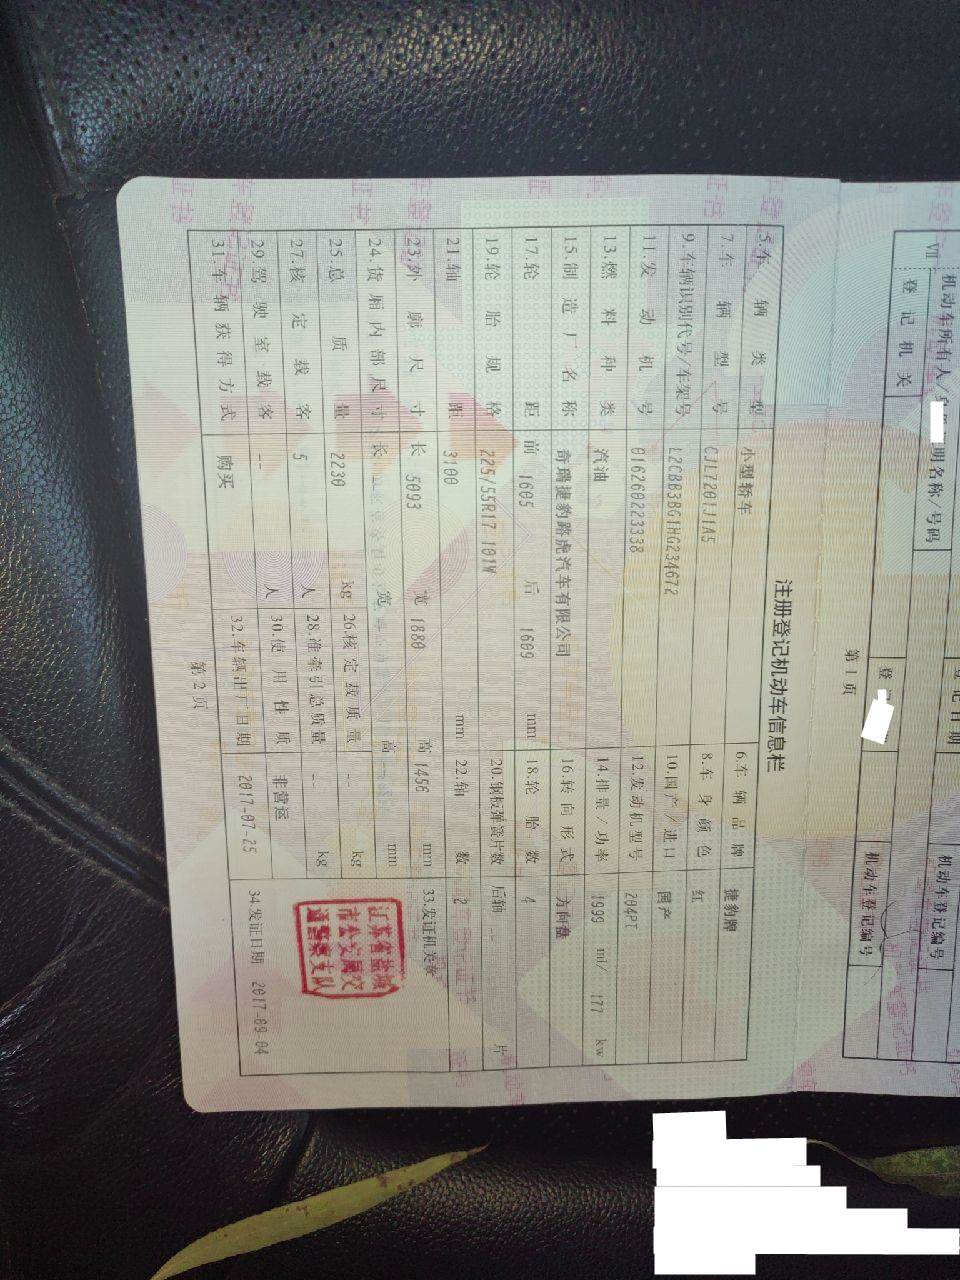 Ⅶ 机动车所有人/
明名称/号码
登记机关
登记日期
机动车登记编号
登
机动车登记编号
第 1 页
注册登记机动车信息栏
5.车辆类型 小型轿车 6.车辆品牌 捷豹牌
7.车辆型号 CJL7201J1A5 8.车身颜色 红
9.车辆识别代号/车架号 L2CBB3BG1HG234672 10.国产/进口 国产
11.发动机号 016260223338 12.发动机型号 204PT
13.燃料种类 汽油 14.排量/功率 1999 ml/ 177 kw
15.制造厂名称 奇瑞捷豹路虎汽车有限公司 16.转向形式 方向盘
17.轮距 前 1605 后 1609 mm 18.轮胎数 4
19.轮胎规格 225/55R17 101W 20.钢板弹簧片数 后轴 -- 片
21.轴距 3100 mm 22.轴数 2
23.外廓尺寸 长 5093 宽 1880 高 1456 mm 33.发证机关章
24.货厢内部尺寸 长 宽 高 mm
25.总质量 2230 kg 26.核定载质量 -- kg
27.核定载客 5 人 28.准牵引总质量 -- kg
29.驾驶室载客 -- 人 30.使用性质 非营运
31.车辆获得方式 购买 32.车辆出厂日期 2017-07-25 34.发证日期 2017-09-04
江苏省盐城
市公安局交
通警察支队
第 2 页